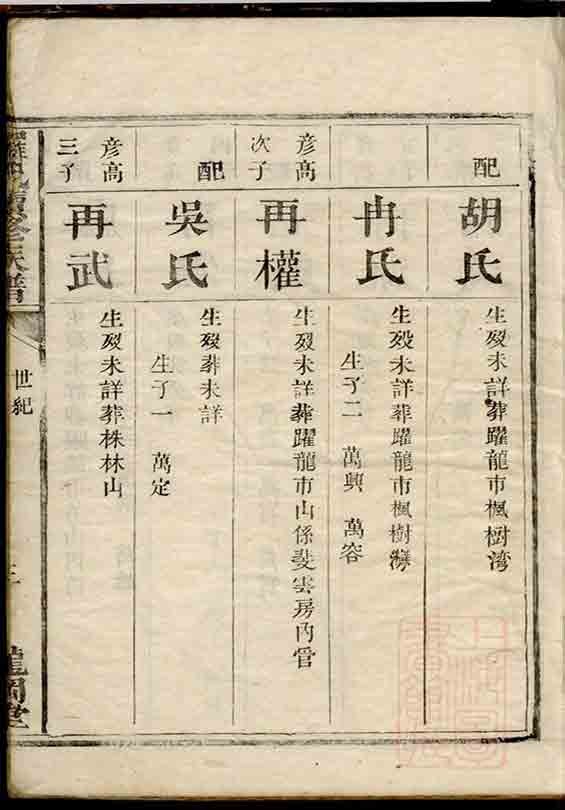 配
胡氏
生歿未詳葬躍龍市楓樹湾
冉氏
生歿未詳葬躍龍市楓樹灣
生子二 萬興 萬容
彦高
次子
再權
生歿未詳葬躍龍市山係斐雲房内管
配
吳氏
生歿葬未詳
生子一 萬定
彦高
三子
再武
生歿未詳葬株林山
修族譜
世紀
龍岡堂